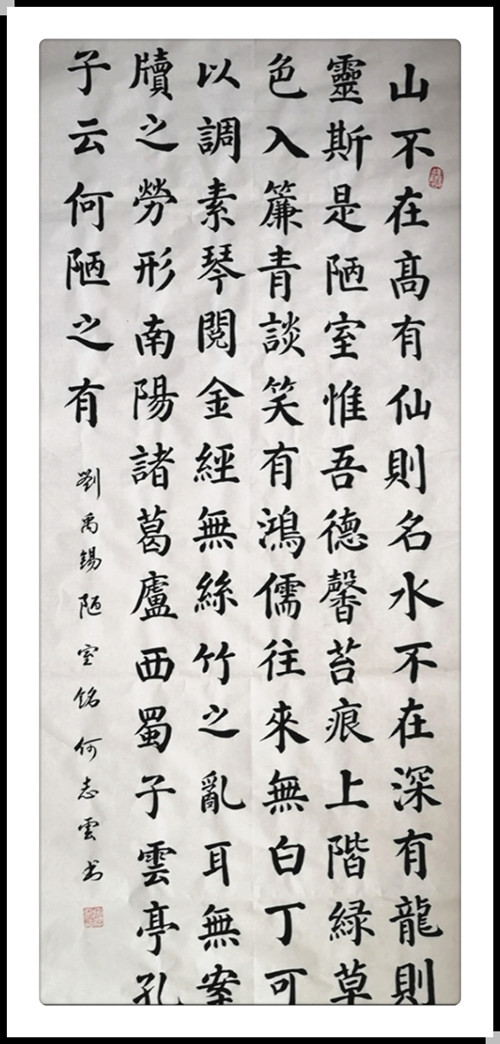 山不在高有仙則名水不在深有龍則
靈斯是陋室惟吾德馨苔痕上階緑草
色入簾青談笑有鴻儒往來無白丁可
以調素琴閱金經無絲竹之亂耳無案
牘之勞形南陽諸葛廬西蜀子雲亭孔
子云何陋之有
劉禹錫陋室銘何志雲书